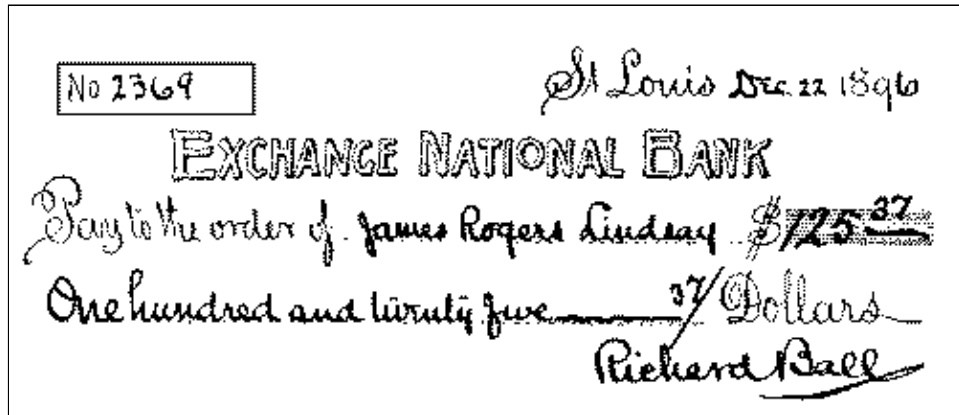 No 2369
St Louis Dec. 22 1896
EXCHANGE NATIONAL BANK
Pay to the order of James Rogers Lindsay $125 37
One hundred and twenty five 37/ Dollars
Richard Ball